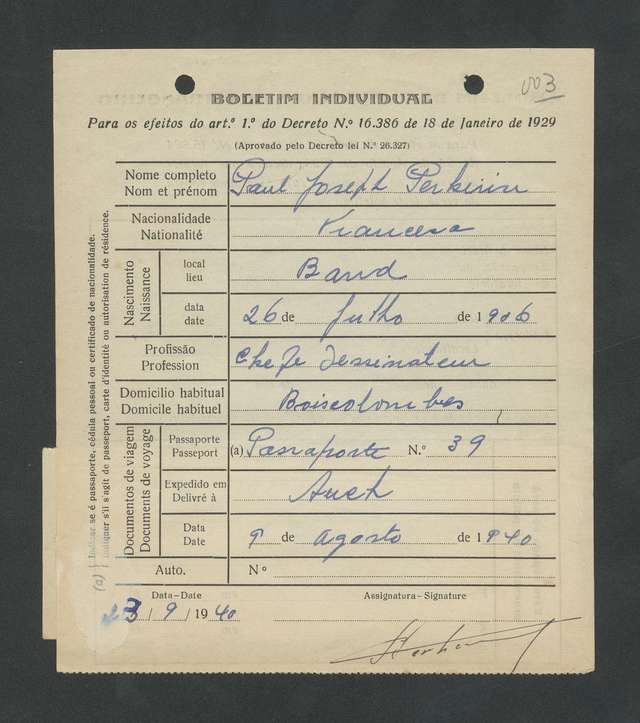 003
BOLETIM INDIVIDUAL
Para os efeitos do art.º 1.º do Decreto N.º 16.386 de 18 de Janeiro de 1929
(Aprovado pelo Decreto lei N.º 26.327)
Nome completo
Nom et prénom
Paul Joseph
Nacionalidade
Nationalité
Francesa
Nascimento
Naissance
local
lieu
Baud
data
date
26 de Julho de 1906
Profissão
Profession
Chefe Dessinateur
Domicilio habitual
Domicile habituel
Boiscolombes
Documentos de viagem
Documents de voyage
Passaporte
Passeport
(a) Passaporte N.º 39
Expedido em
Delivré à
Auch
Data
Date
9 de Agosto de 1940
Auto.
Nº
(a) Indicar se é passaporte, cédula pessoal ou certificado de nacionalidade.
Indiquer s'il s'agit de passeport, carte d'identité ou autorisation de résidence.
Data-Date
23/9/1940
Assignatura-Signature